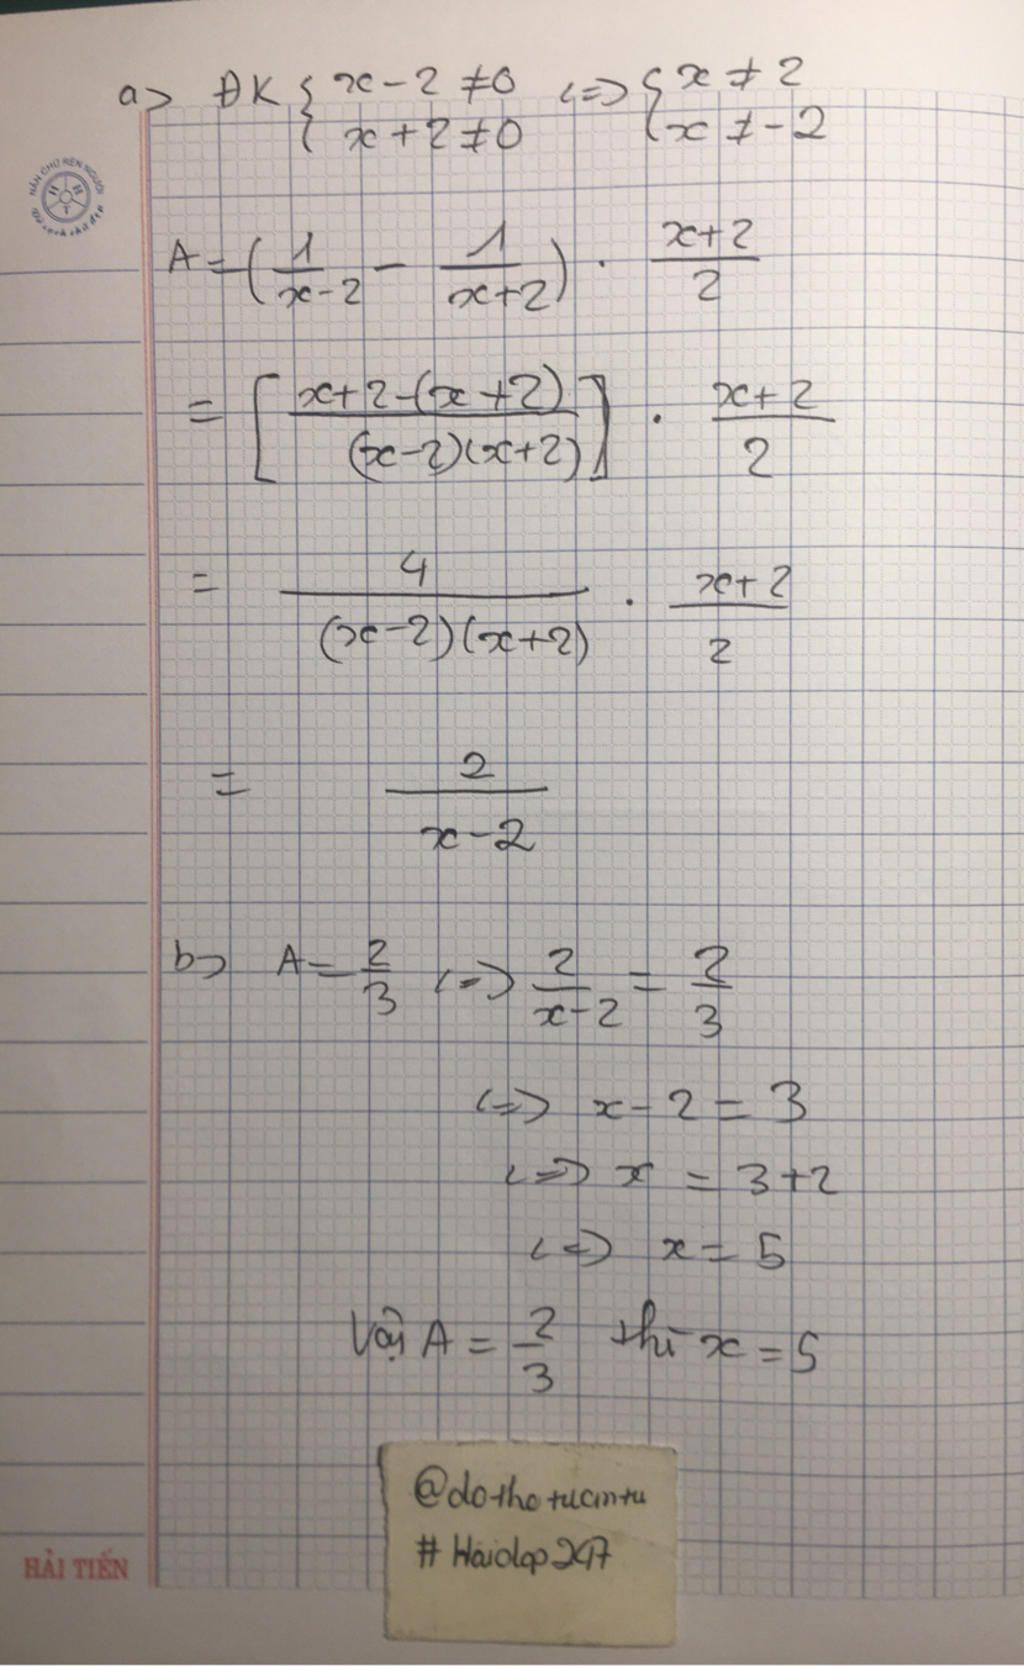 a> ĐK { x - 2 ≠ 0 <=> { x ≠ 2
{ x + 2 ≠ 0 { x ≠ -2
NẮN CHỮ RÈN NGƯỜI
H H
T
A = (1/(x-2) - 1/(x+2)) . (x+2)/2
= [(x+2-(x+2))/((x-2)(x+2))] . (x+2)/2
= 4/((x-2)(x+2)) . (x+2)/2
= 2/(x-2)
b> A = 2/3 <=> 2/(x-2) = 2/3
<=> x - 2 = 3
<=> x = 3+2
<=> x = 5
Vậy A = 2/3 thì x = 5
@dothotucmtu
# Hoidap247
HẢI TIẾN